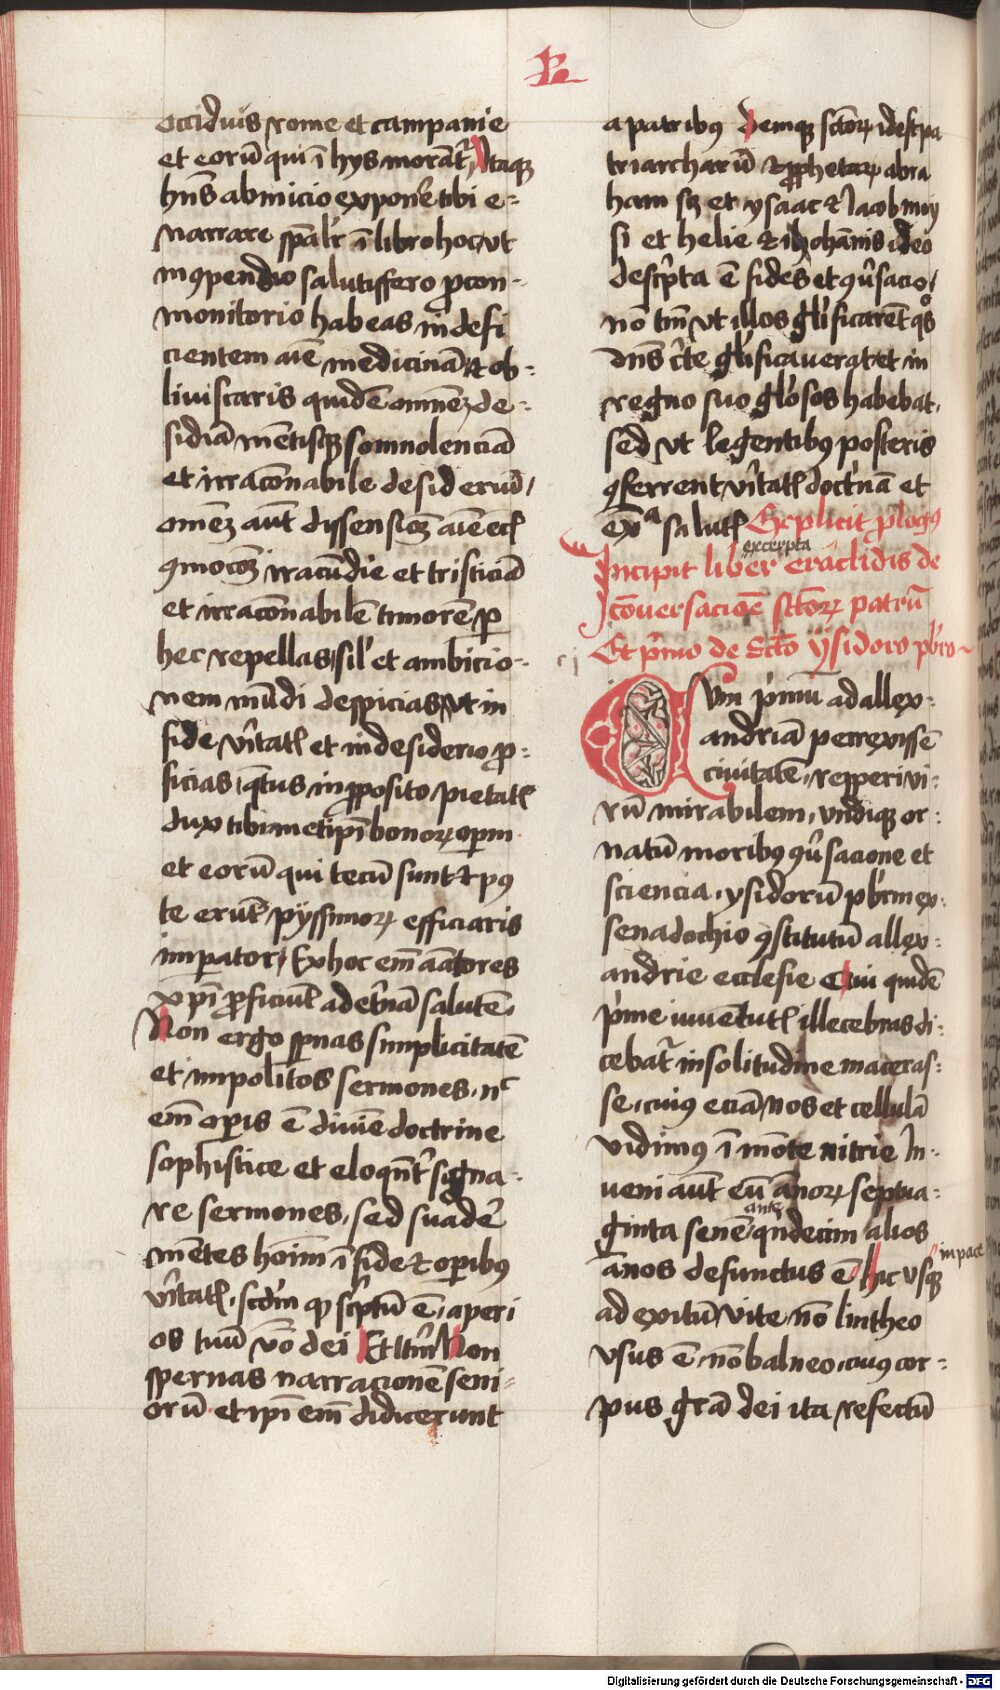 R
occiduis rome et campanie
et eorū qui ī hys morāt᷑ Itaqꝫ
hn̄s ab inicio exponē tibi e-
narrare sp̄alr̄ ī libro hoc, vt
in ꝯpendio salutiffero ꝓ con-
monitorio habeas indefi
cientem aīe medicinā et ob-
liuiscaris quidē omnēꝫ de-
sidiā mētisqꝫ somnolenciā
et irracōnabile desideriū,
omēꝫ aūt dissensiōꝫ aīe
ꝯmocōꝫ iracūdie et tristiciā
et irracōnabilē timorē ꝑ
hec repellas, sil' et ambicio-
nem mūdi despicias, vt in
fide v̄itatꝭ et in desiderio ꝓ-
ficias, q̄tus in ꝓposito pietatꝭ
dux tibimetip̄i bonoꝝ oꝑm
et eorū qui tecū sunt et pꝰ
te erūt, pijssimoꝝ efficiaris
imꝑator, Ex hoc em̄ amatores
xp̄i ꝓficiūt ad et̄nā salutē,
Non ergo sp̄nas simplicitatē
et impolitos sermones, n̄c
em̄ oꝑis ē diuīe doctrine
sophistice et eloqn̄t' signa-
re sermones, sed suadē
mētes hoīm ī fide et oꝑibus
v̄itatꝭ, scd̄m ꝙ sc̄ptū ē, aperi
os tuū v̄o dei Et itm̄ Non
spernas narracionē seni-
orū et ip̄i em̄ didicerunt
a patribꝰ Demqꝫ sc̄toꝝ id est pa
triarcharū et ꝓphetaꝝ abra
ham sꝫ et ysaac et Jacob moy
si et helie et iohānis ideo
descp̄ta ē fides et ꝯūsacio,
nō tm̄ vt illos gl̄ificarēt q̊s
dn̄s c̄te gl̄ificauerat et in
regno suo gl̄osos habebat,
sed vt legentibꝰ posteris
ꝯferrent v̄itatꝭ doct̄nā et
salutꝭ Explicit ꝓlogꝰ
excerpta
Incipit liber eraclidis de
ꝯuersacionē sc̄toꝝ patrū
Et p̄mo de Sc̄to Ysidoro pb̄ro
Cum p̄mū ad allex-
andriā perrexissē
ciuitatē, repperi vi-
rū mirabilem, vndiqꝫ or-
natū moribꝰ ꝯūsacione et
sciencia, ysidorū pb̄rm ex-
senadochio ꝯstitutū allex-
andrie ecclesie Qui quidē
p̄me iuuētutꝭ illecebras di-
cebat᷑ in solitudine maceras-
se, cuiꝰ eciā nos et cellulā
vidimꝰ ī mōte nitrie In-
ueni aūt eū ānoꝝ septua-
ginta senē, qui ante qndecim alios
ānos defunctus ē in pace Hic vsqꝫ
ad exitū vite nō lintheo
vsus ē, nō balneo, cuiꝰ cor-
pus gr̄a dei ita refectū
Digitalisierung gefördert durch die Deutsche Forschungsgemeinschaft - DFG